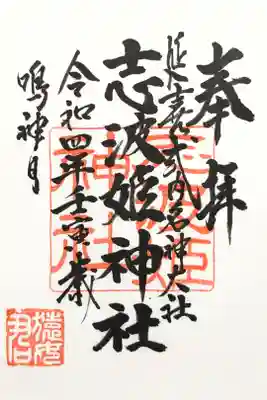 奉拝
延喜式内名神大社
志波姫神社
令和四年壬寅歳
鳴神月
志波姫神社